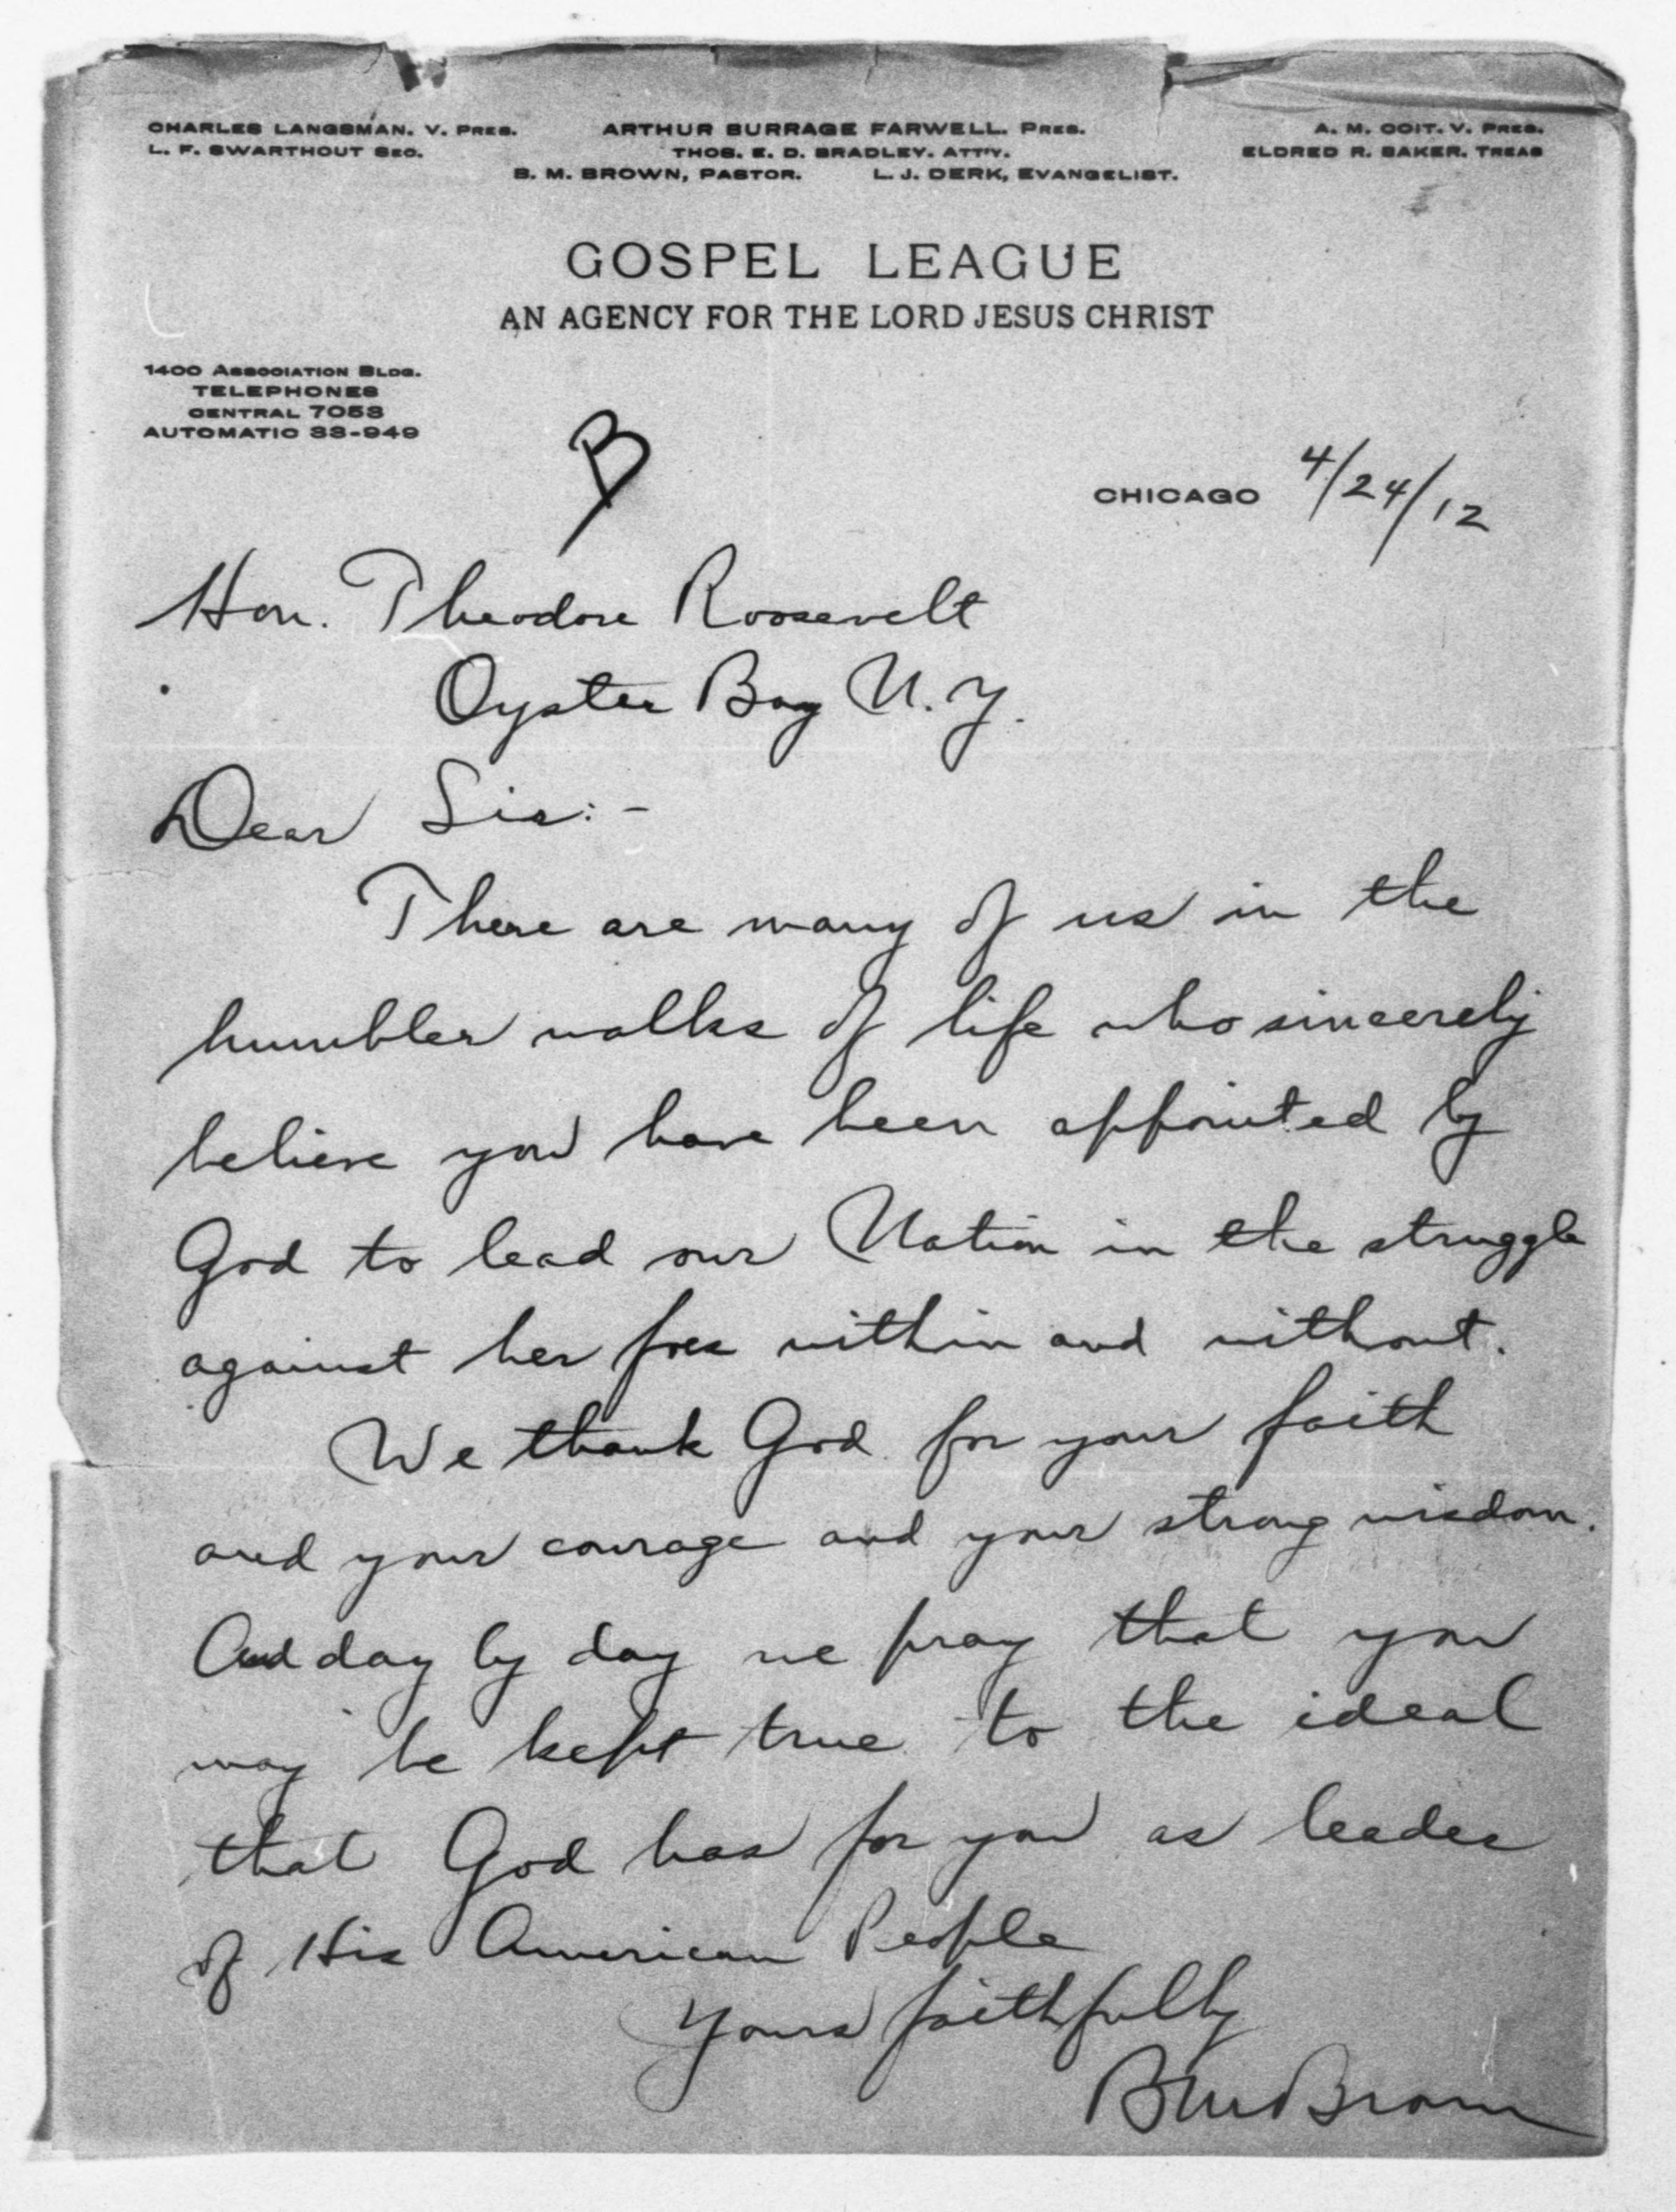 CHARLES LANGSMAN. V. PRES. ARTHUR BURRAGE FARWELL. PRES. A. M. COIT. V. PRES.
L. F. SWARTHOUT SEC. THOS. E. D. BRADLEY. ATT'Y. ELDRED R. BAKER. TREAS
B. M. BROWN, PASTOR. L. J. DERK, EVANGELIST.
GOSPEL LEAGUE
AN AGENCY FOR THE LORD JESUS CHRIST
1400 ASSOCIATION BLDG.
TELEPHONES
CENTRAL 7053
AUTOMATIC 33-949
B
CHICAGO 4/24/12
Hon. Theodore Roosevelt
Oyster Bay N.Y.
Dear Sir:-
There are many of us in the
humbler walks of life who sincerely
believe you have been appointed by
God to lead our Nation in the struggle
against her foes within and without.
We thank God for your faith
and your courage and your strong wisdom.
And day by day we pray that you
may be kept true to the ideal
that God has for you as leader
of His American People
Yours faithfully
B M Brown